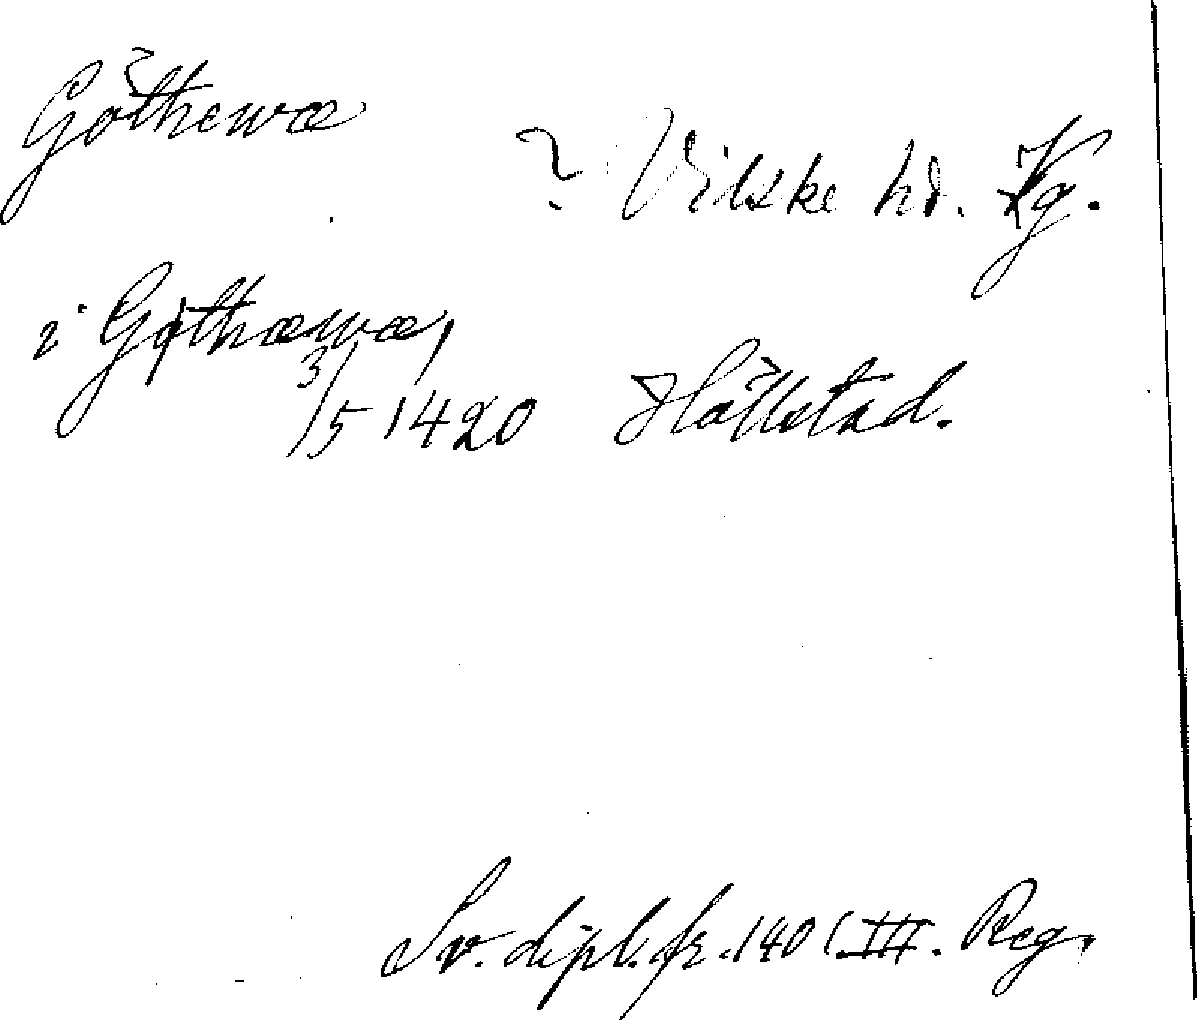 Göthewæ
? Vilske hd. Vg.
i Gøthæwæ,
3/5 1420 Hällstad.
Sv. dipl. fr. 1401. III. Reg.